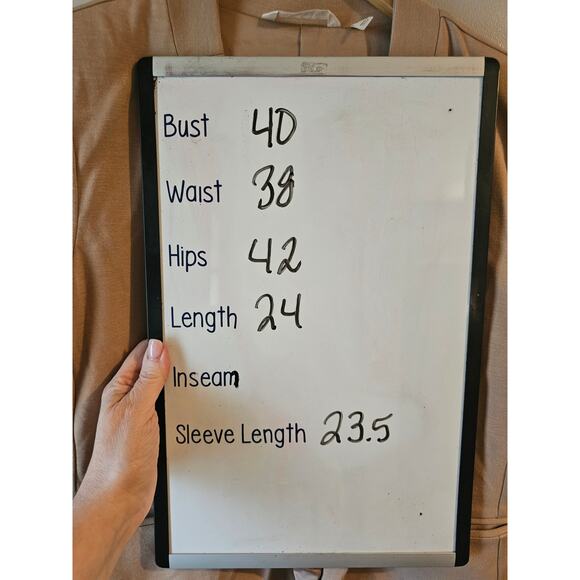 Bust 40
Waist 38
Hips 42
Length 24
Inseam
Sleeve Length 23.5